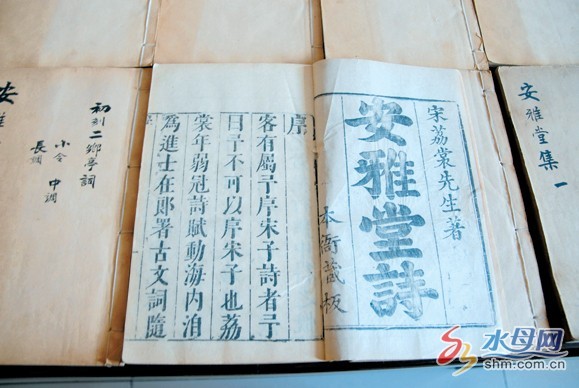 宋荔裳先生著
安雅堂詩
本衙藏板
序
客有屬予序宋子詩者予
曰予不可以序宋子也荔
裳年弱冠詩賦動海内洎
為進士在郎署古文詞隨
初刻二鄉亭詞
小令 中調
長調
安雅
安雅堂集 一
水母网
shm.com.cn